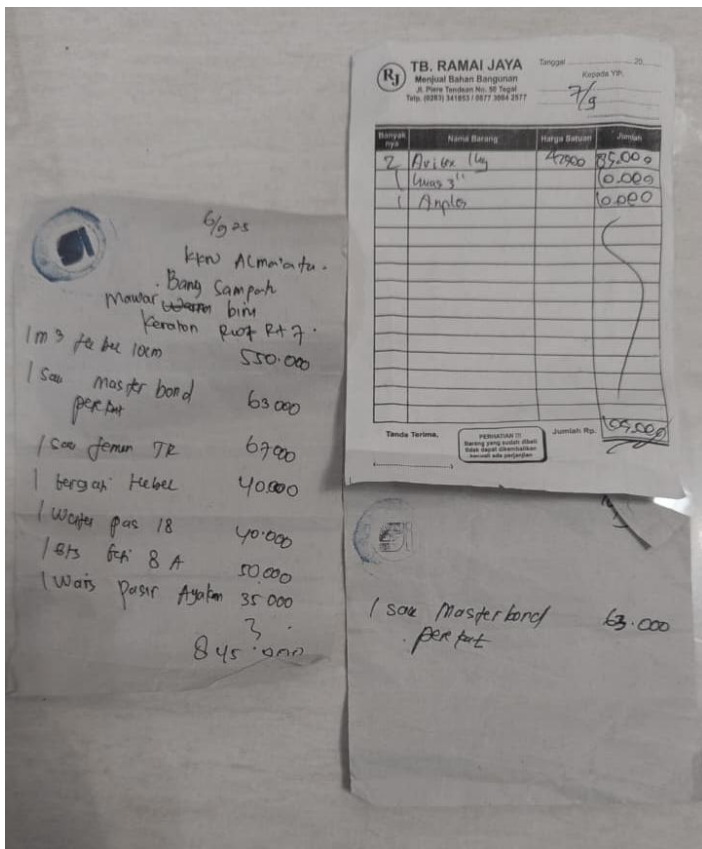 6/9 25
KKN Almaata.
Bang Sampah
Mawar biru
Keraton Rw07 Rt 7.
1 m3 hebel 10cm 550.000
1 sau master bond 63 000
perekat
1 sau semen TR 67000
1 gergaji Hebel 40.000
1 Water pas 18 40.000
1 Bts besi 8 A 50.000
1 Wals Pasir Ayakan 35 000
3
845.000
RJ
TB. RAMAI JAYA
Menjual Bahan Bangunan
Jl. Piere Tendean No. 50 Tegal
Telp. (0283) 341653 / 0877 3064 2577
Tanggal 20
Kepada Yth,
7/9
Banyak nya Nama Barang Harga Satuan Jumlah
2 Avitex 1kg 42500 85.000
1 kuas 3" 10.000
1 Amplas 10.000
Tanda Terima,
PERHATIAN !!!
Barang yang sudah dibeli
tidak dapat dikembalikan
kecuali ada perjanjian
Jumlah Rp. 105.000
1 sau Masterbond 63.000
perekat